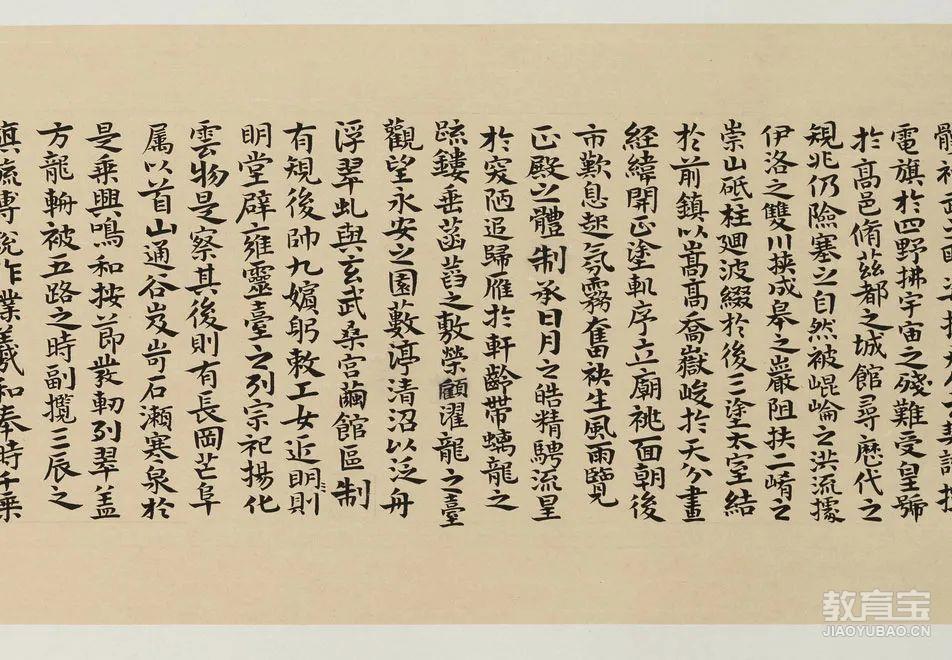 電旗於四野拂宇宙之殘難受皇號
於高邑脩茲都之城館尋歷代之
規兆仍險塞之自然被崐崘之洪流據
伊洛之雙川挾成皋之嚴阻扶二崤之
崇山砥柱廻波綴於後三塗太室結
於前鎮以嵩高喬嶽峻於天分畫
經緯開正塗軌序立廟祧面朝後
市歎息起氛霧奮袂生風雨覽
正殿之體制承日月之皓精騁流星
於突陋追歸雁於軒齡帶螭龍之
疏鏤垂菡萏之敷榮顧濯龍之臺
觀望永安之園藪渟清沼以泛舟
浮翠虬與玄武桑宮繭館區制
有規後帥九嬪躬敕工女近則
明堂辟雍靈臺之列宗祀揚化
雲物是察其後則有長岡芒阜
属以首山通谷岌岢石瀨寒泉於
是乘輿鳴和按節發軔列翠盖
方龍輈被五路之時副攬三辰之
旗斿傅說作業羲和奉時千乘
教育宝
JIAOYUBAO.CN